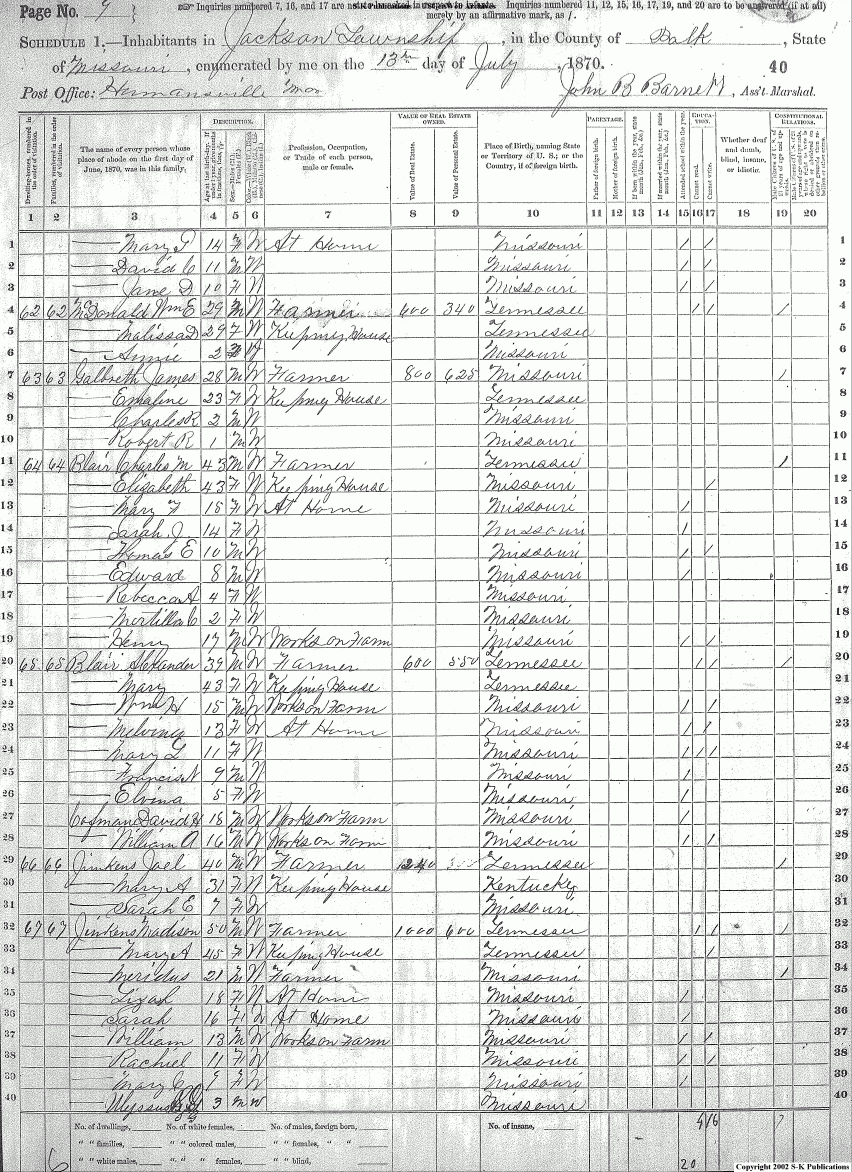 Page No. 9
Inquiries numbered 7, 16, and 17 are not to be asked in respect to infants. Inquiries numbered 11, 12, 15, 16, 17, 19, and 20 are to be answered (if at all)
merely by an affirmative mark, as /.
SCHEDULE 1.—Inhabitants in Jackson Township, in the County of Polk, State
of Missouri, enumerated by me on the 13th day of July, 1870. 40
Post Office: Hermansville Mo John B Barnett, Ass't Marshal.
DESCRIPTION. VALUE OF REAL ESTATE OWNED. PARENTAGE. EDUCATION. CONSTITUTIONAL RELATIONS.
Dwelling-houses, numbered in the order of visitation. Families, numbered in the order of visitation. The name of every person whose place of abode on the first day of June, 1870, was in this family. Profession, Occupation, or Trade of each person, male or female. Value of Real Estate. Value of Personal Estate. Place of Birth, naming State or Territory of U. S.; or the Country, if of foreign birth. Father of foreign birth. Mother of foreign birth. Attended school within the year. Cannot read. Cannot write. Whether deaf and dumb, blind, insane, or idiotic.
1 2 3 4 5 6 7 8 9 10 11 12 13 14 15 16 17 18 19 20
1 — Mary T 14 F W At Home Missouri / / 1
2 — David C 11 M W Missouri / / 2
3 — Jane D 10 F W Missouri / / 3
4 62 62 McDonald Wm E 29 M W Farmer 600 340 Tennessee / / / 4
5 — Malissa D 29 F W Keeping House Tennessee 5
6 — Annie 2 F W Missouri 6
7 63 63 Galbreth James 28 M W Farmer 800 625 Missouri / 7
8 — Emaline 23 F W Keeping House Tennessee 8
9 — Charles R 2 M W Missouri 9
10 — Robert R 1 M W Missouri 10
11 64 64 Blair Charles M 43 M W Farmer Tennessee / 11
12 — Elizabeth 43 F W Keeping House Missouri / 12
13 — Mary F 18 F W At Home Missouri / 13
14 — Sarah J 14 F W Missouri / 14
15 — Thomas E 10 M W Missouri / / 15
16 — Edward 8 M W Missouri / 16
17 — Rebecca A 4 F W Missouri 17
18 — Mortilla C 2 F W Missouri 18
19 — Henry 17 M W Works on Farm Missouri / / 19
20 65 65 Blair Alexander 39 M W Farmer 600 550 Tennessee / / / 20
21 — Mary 43 F W Keeping House Tennessee 21
22 — Wm H 15 M W Works on Farm Missouri / / 22
23 — Melvina 13 F W At Home Missouri / / 23
24 — Mary L 11 F W Missouri / / / 24
25 — Francis N 9 M W Missouri / 25
26 — Elvina 5 F W Missouri / 26
27 Cofman David H 18 M W Works on Farm Missouri / 27
28 — William A 16 M W Works on Farm Missouri / / 28
29 66 66 Jinkens Joel 40 M W Farmer 1240 Tennessee / 29
30 — Mary A 31 F W Keeping House Kentucky 30
31 — Sarah E 7 F W Missouri 31
32 67 67 Jinkens Madison 50 M W Farmer 1000 600 Tennessee / / / 32
33 — Mary A 45 F W Keeping House Tennessee / 33
34 — Meridus 21 M W Farmer Missouri / 34
35 — Lizah 18 F W At Home Missouri / 35
36 — Sarah 16 F W At Home Missouri / 36
37 — William 13 M W Works on Farm Missouri / / 37
38 — Rachiel 11 F W Missouri / / 38
39 — Mary C 9 F W Missouri / 39
40 — Ulyssus 3 M W Missouri 40
No. of dwellings, No. of white females, No. of males, foreign born, No. of insane,
" " families, " " colored males, " " females, " "
" " white males, " " " females, " " blind,
6 20 7
Copyright 2002 S-K Publications